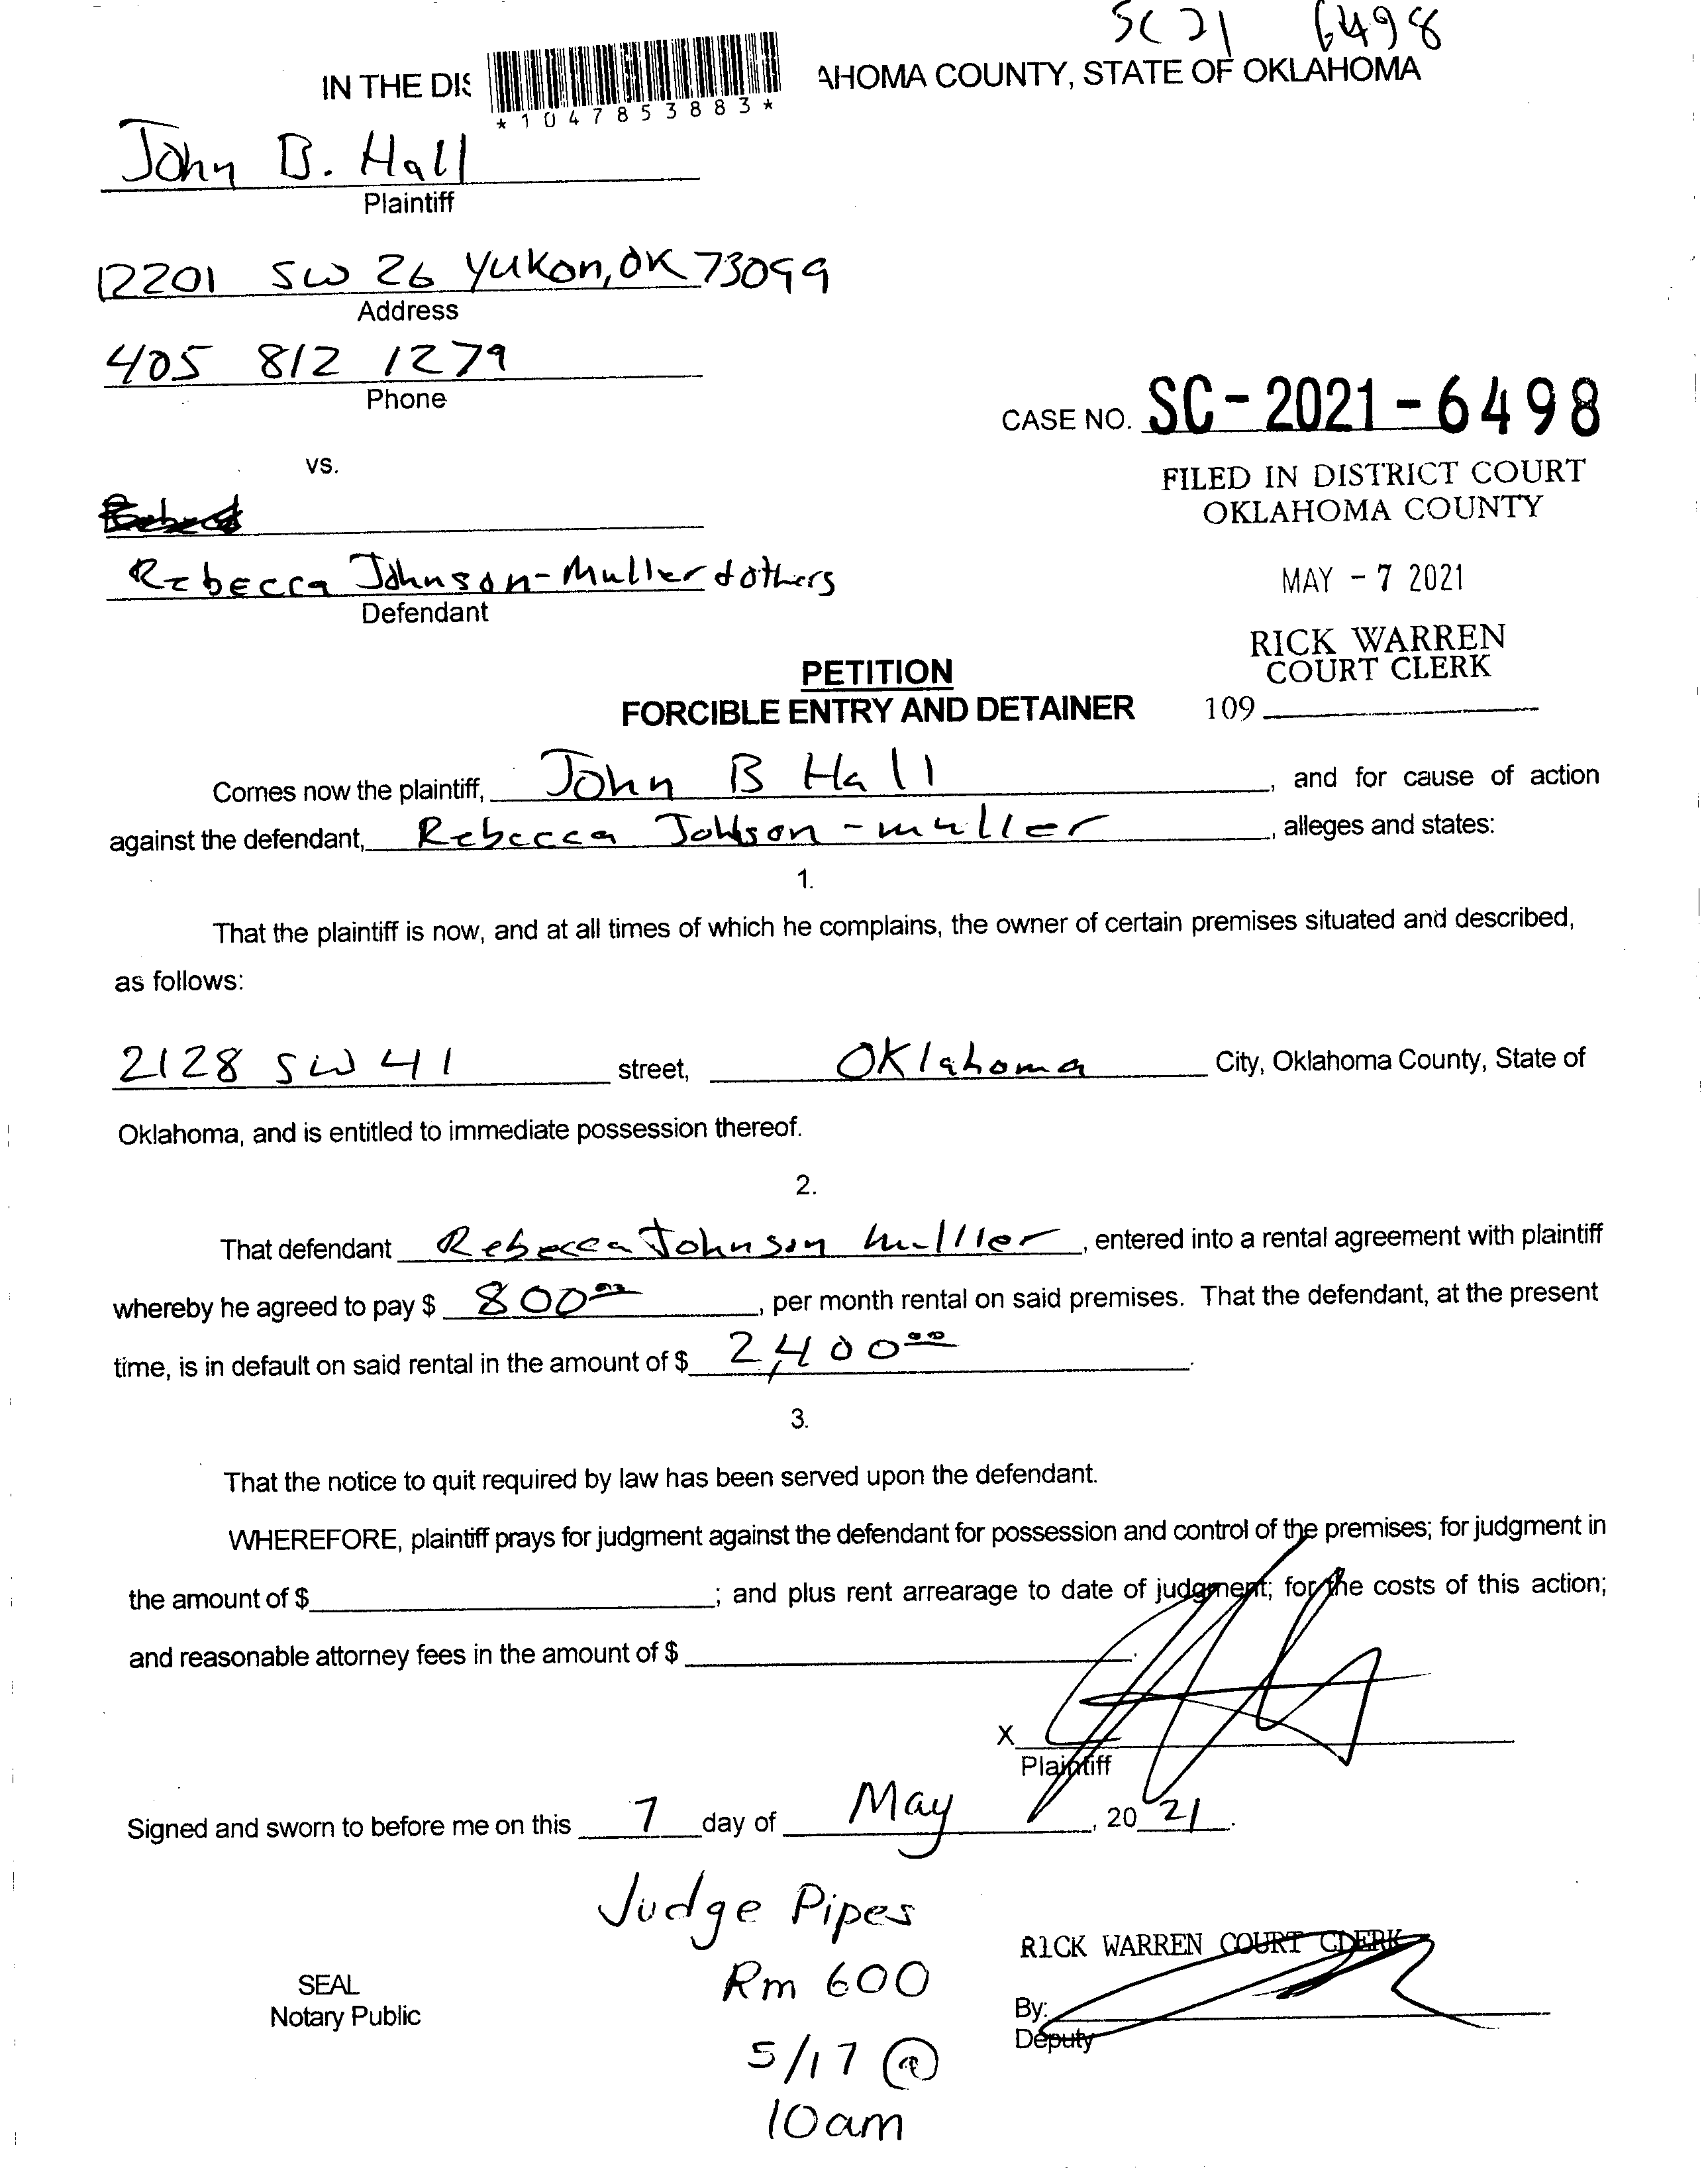 SC 21 6498
IN THE DIS AHOMA COUNTY, STATE OF OKLAHOMA
*1047853883*
John B. Hall
Plaintiff
12201 SW 26 Yukon, OK 73099
Address
405 812 1279
Phone
CASE NO. SC-2021-6498
vs.
FILED IN DISTRICT COURT
OKLAHOMA COUNTY
Rebecca Johnson-Muller & others
Defendant
MAY - 7 2021
RICK WARREN
COURT CLERK
109
PETITION
FORCIBLE ENTRY AND DETAINER
Comes now the plaintiff, John B Hall, and for cause of action
against the defendant, Rebecca Johnson-muller, alleges and states:
1.
That the plaintiff is now, and at all times of which he complains, the owner of certain premises situated and described,
as follows:
2128 SW 41 street, Oklahoma City, Oklahoma County, State of
Oklahoma, and is entitled to immediate possession thereof.
2.
That defendant Rebecca Johnson Mulller, entered into a rental agreement with plaintiff
whereby he agreed to pay $ 800.00, per month rental on said premises. That the defendant, at the present
time, is in default on said rental in the amount of $ 2,400.00.
3.
That the notice to quit required by law has been served upon the defendant.
WHEREFORE, plaintiff prays for judgment against the defendant for possession and control of the premises; for judgment in
the amount of $ ; and plus rent arrearage to date of judgment; for the costs of this action;
and reasonable attorney fees in the amount of $ .
X
Plaintiff
Signed and sworn to before me on this 7 day of May, 2021.
Judge Pipes
Rm 600
5/17 @
10am
RICK WARREN COURT CLERK
SEAL
Notary Public
By:
Deputy